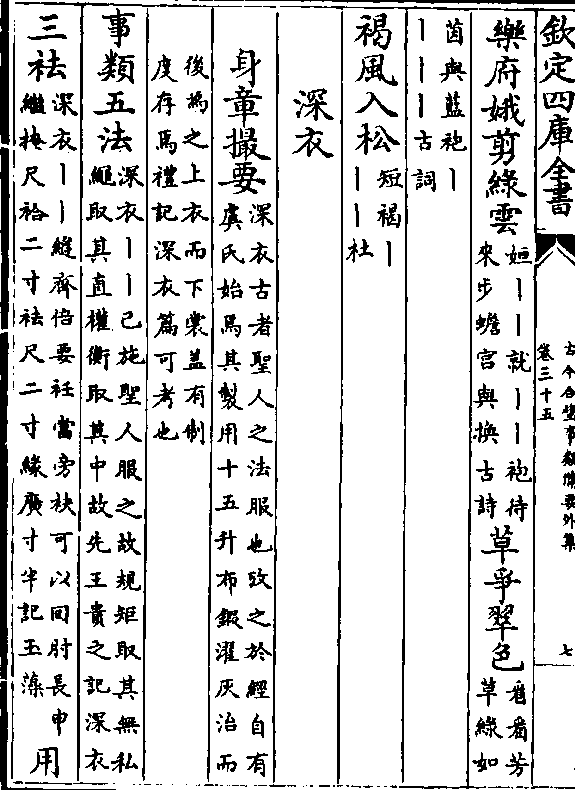 欽定四庫全書
古今合璧事類備要外集
卷三十五
七
樂府娥剪綠雲
姮丨丨就丨丨袍待
來步蟾宮與換古詩
草爭翠色
看看芳
草綠如
茵與藍袍丨
丨丨丨古詞
褐風入松
短褐丨
丨丨杜
深衣
身章撮要
深衣古者聖人之法服也攷之於經自有
虞氏始焉其製用十五升布鍛濯灰治而
後為之上衣而下裳蓋有制
度存焉禮記深衣篇可考也
事類五法
深衣丨丨已施聖人服之故規矩取其無私
繩取其直權衡取其中故先王貴之記深衣
三袪
深衣丨丨縫齊倍要衽當旁袂可以回肘長中
繼掩尺袷二寸袪尺二寸緣廣寸半記玉藻
用